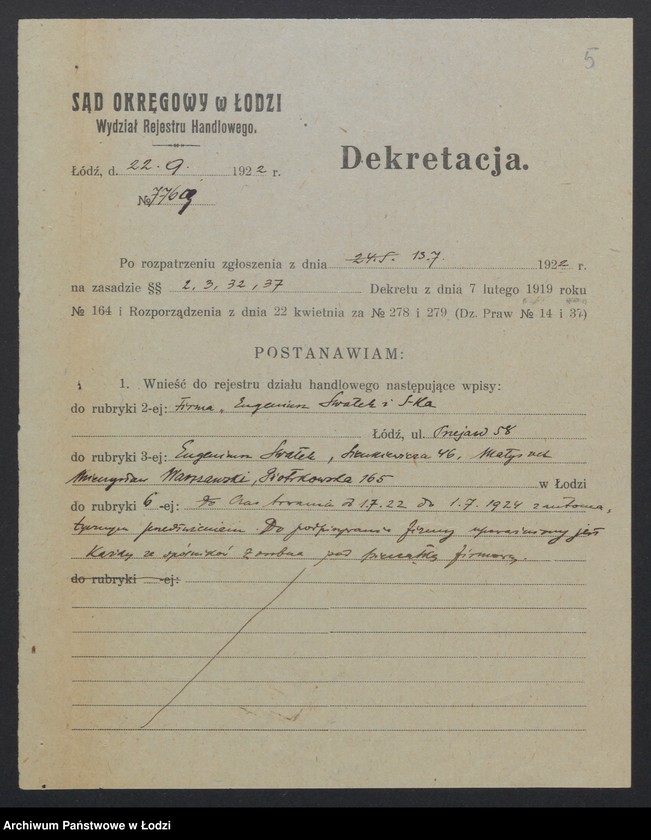 5
SĄD OKRĘGOWY w ŁODZI
Wydział Rejestru Handlowego.
Dekretacja.
Łódź, d. 22. 9. 1922 r.
№ 7769
Po rozpatrzeniu zgłoszenia z dnia 13.7 1922 r.
na zasadzie §§ 2, 3, 32, 37 Dekretu z dnia 7 lutego 1919 roku
№ 164 i Rozporządzenia z dnia 22 kwietnia za № 278 i 279 (Dz. Praw № 14 i 37)
POSTANAWIAM:
1. Wnieść do rejestru działu handlowego następujące wpisy:
do rubryki 2-ej: Firma „Eugeniusz Swałek i S-ka
Łódź, ul. 58
do rubryki 3-ej: Eugeniusz Swałek, Sienkiewicza 46,
Mieczysław Warszawski, Piotrkowska 165 w Łodzi
do rubryki 6-ej: Czas trwania od 1.7.22 do 1.7.1924 z automa,
tycznym przedłużeniem. Do podpisywania firmy upoważniony jest
każdy ze spólników zosobna pod pieczątką firmową.
do rubryki -ej:
Archiwum Państwowe w Łodzi